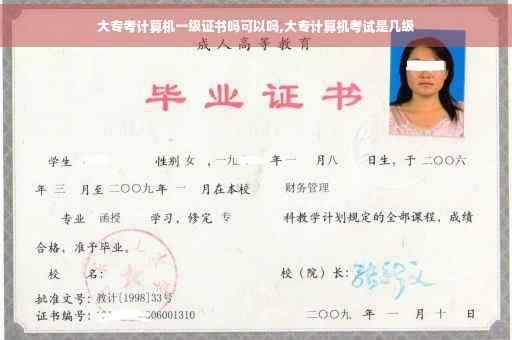 大专考计算机一级证书吗可以吗,大专计算机考试是几级
成人高等教育
毕业证书
学生 性别 女 ,一九 年 一 月八 日生,于 二〇〇六
年 三 月至 二〇〇九 年 一 月在本校 财务管理
专业 函授 学习,修完 专 科教学计划规定的全部课程,成绩
合格,准予毕业。
校 名: 校(院)长:
批准文号:教计[1998]33号
证书编号: 06001310 二〇〇九 年 一 月 十 日